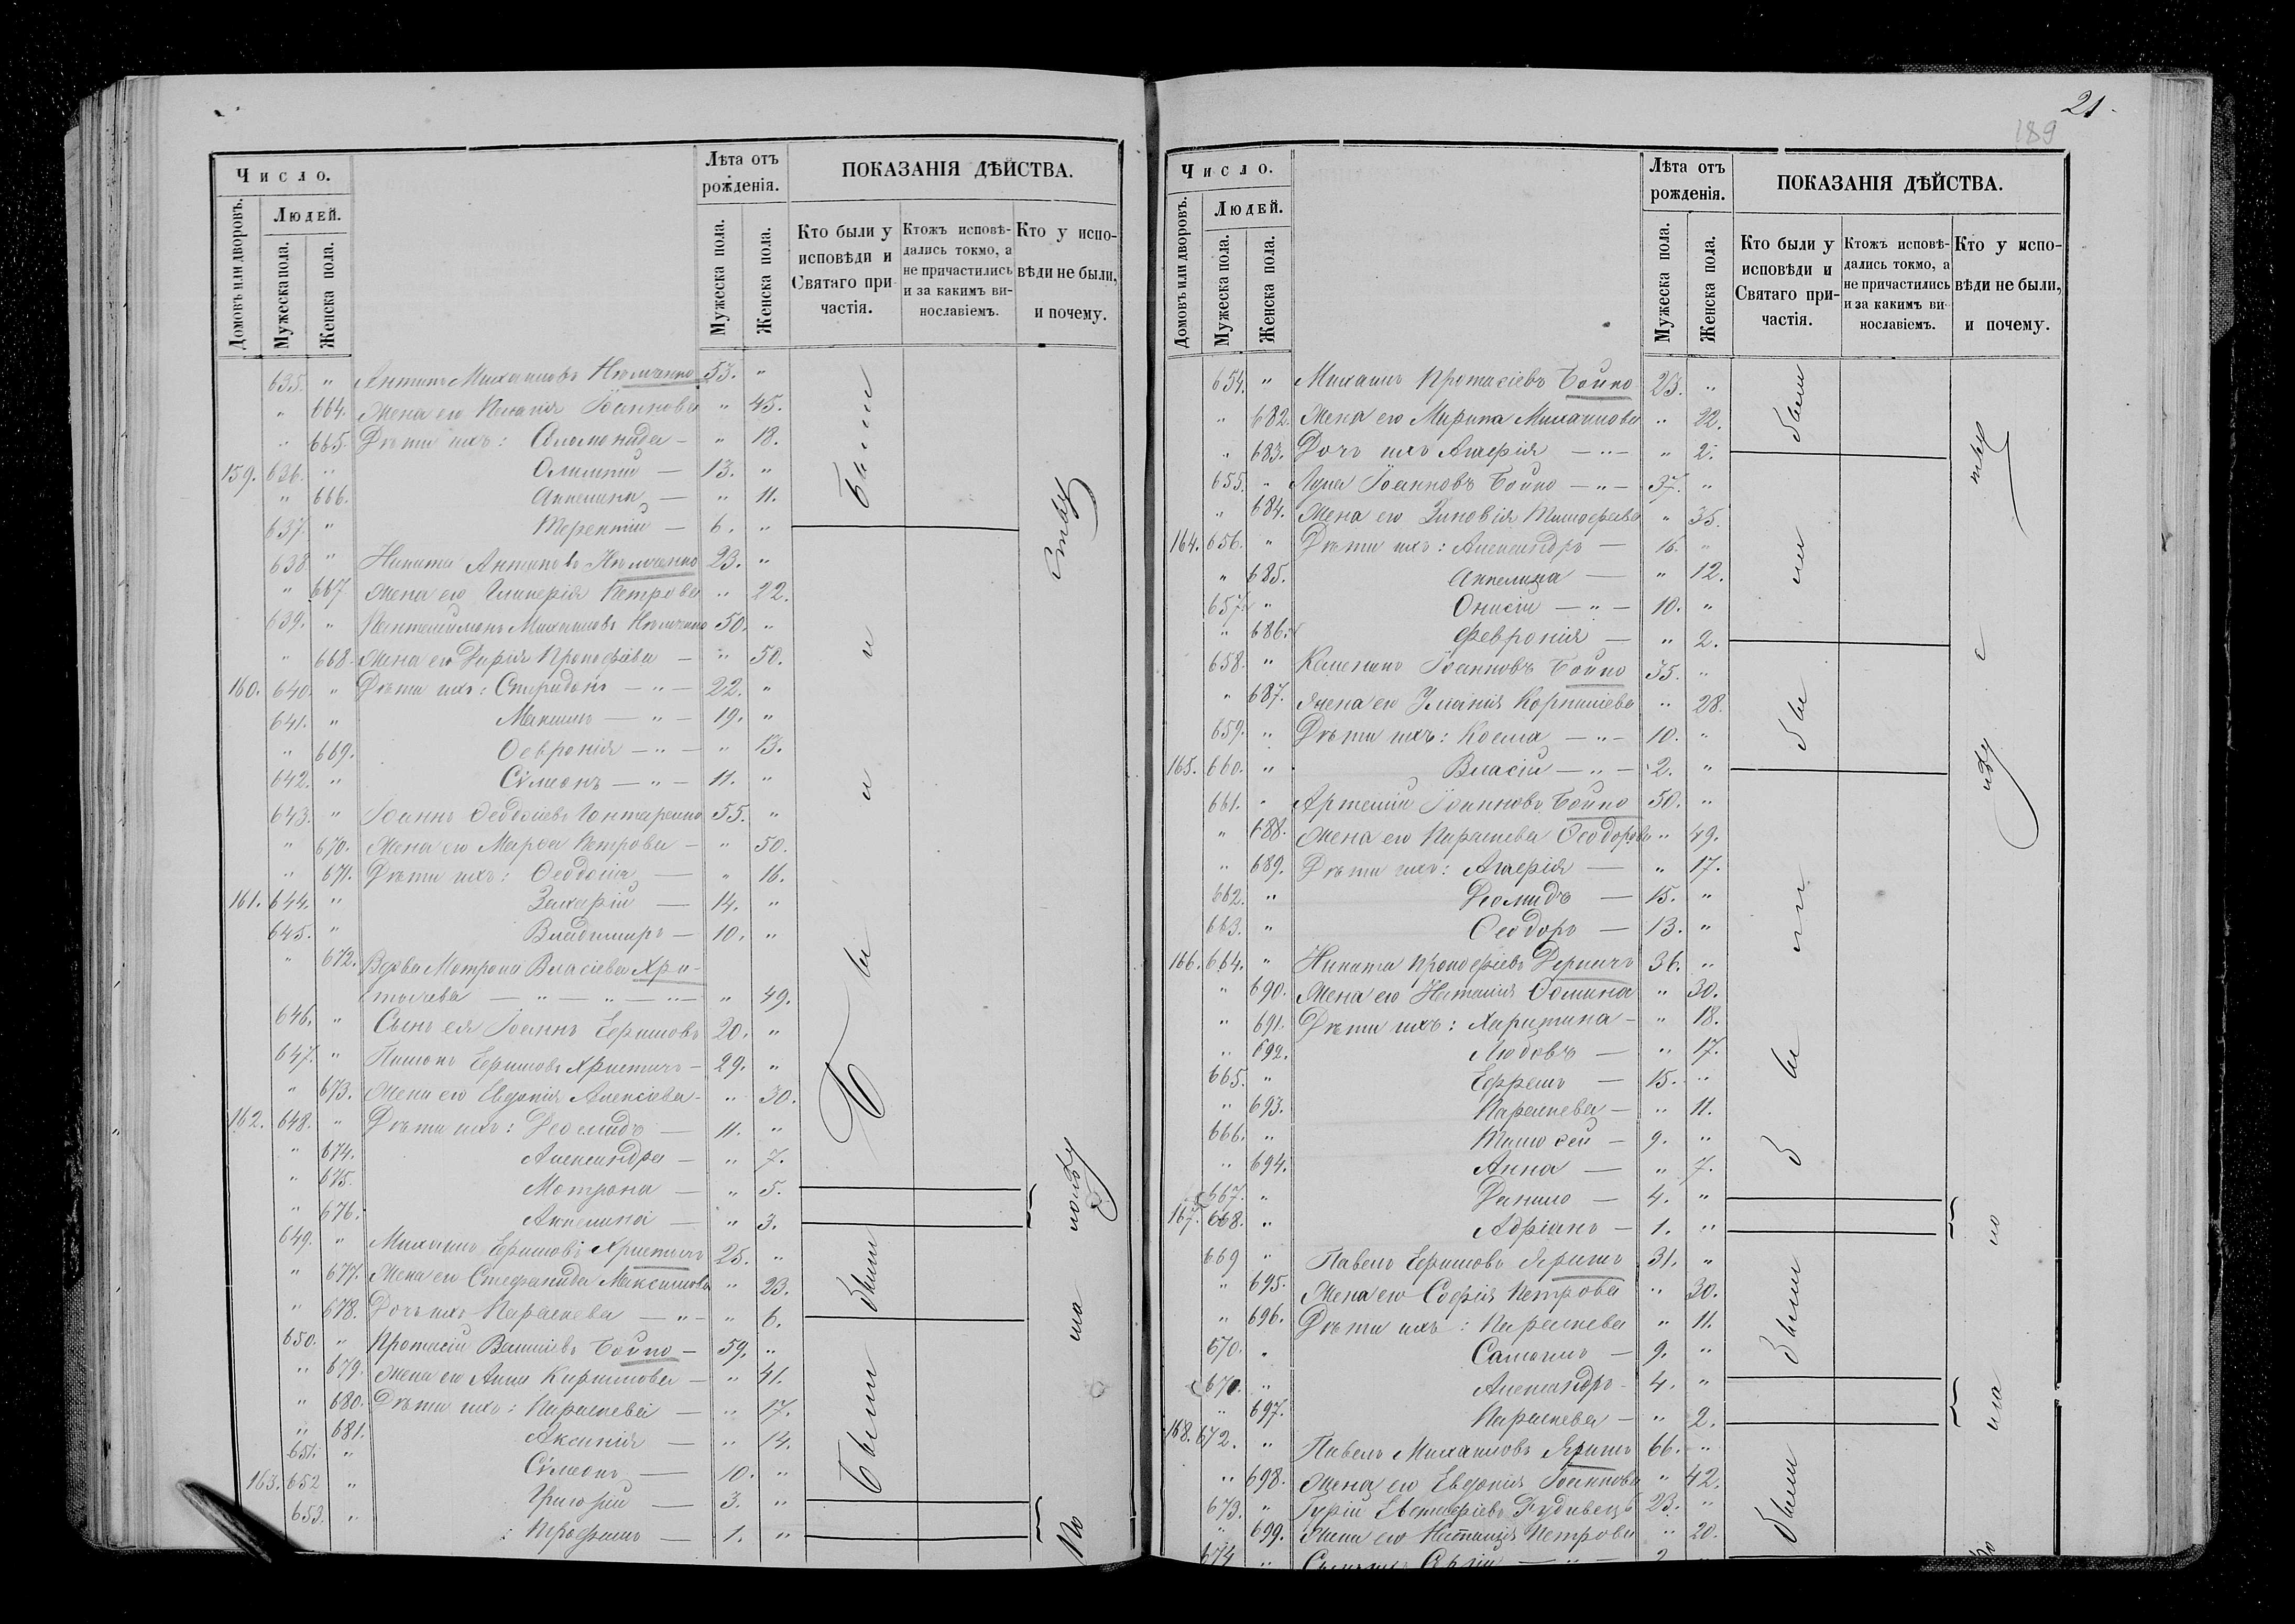 Число.
Лѣта отъ рожденія.
ПОКАЗАНІЯ ДѢЙСТВА.
Домовъ или дворовъ.
Людей.
Мужеска пола.
Женска пола.
Мужеска пола.
Женска пола.
Кто были у исповѣди и Святаго причастія.
Ктожъ исповѣдались токмо, а не причастились и за какимъ винославіемъ.
Кто у исповѣди не были, и почему.
635. " Антипъ Михаиловъ 53. "
" 664. Жена его Пелагія Іоаннова " 45.
" 665. Дѣти ихъ: Соломонида — " 18.
159. 636. " — 13. "
" 666. Акилина — " 11.
637. " Терентій — 6. "
638 " Никита Антиповъ 23. "
" 667. Жена его Гликерія Петрова " 22.
639. " Пантелимонъ Михаиловъ 50. "
" 668. Жена его Дарія Прокофіева — " 50.
160. 640. " Дѣти ихъ: Спиридонъ — " — 22. "
641. " Максимъ — " — 19. "
" 669. Ѳевронія — " — " 13.
642. " Сѵмеонъ — " — 11. "
643. " Іоаннъ Ѳеодосіевъ 55. "
" 670. Жена его Марѳа Петрова — " 50.
" 671. Дѣти ихъ: Ѳеодосія — " 16.
161. 644. " Захарій — 14. "
645. " Владимиръ — 10. "
" 672. Вдова Мотрона Власіева Хри-
стычева — " — " — " — " 49.
646. " Сынъ ея Іоаннъ Ефимовъ 20. "
647. " Ефимовъ Христичъ — 29. "
" 673. Жена его Евдокія Алексіева — " 30.
162. 648. " Дѣти ихъ: Діомидъ — 11. "
" 674. Александра — " 7.
" 675. Мотрона — " 5.
" 676. Акилина — " 3.
649. " Михаилъ Ефимовъ Христичъ 25. "
" 677. Жена его Стефанида Максимова " 23.
" 678. Дочь ихъ Параскева — " — " 6.
650. " Протасій Бойко — 59. "
" 679. Жена его Анна Кириллова — " 41.
" 680. Дѣти ихъ: Параскева — " 17.
" 681. Аксинія — " 14.
651. " Сѵмеонъ — 10. "
163. 652 " Григорій — 3. "
653. " — 1. "
Были
Были
были
Были
21.
189
Число.
Лѣта отъ рожденія.
ПОКАЗАНІЯ ДѢЙСТВА.
Домовъ или дворовъ.
Людей.
Мужеска пола.
Женска пола.
Мужеска пола.
Женска пола.
Кто были у исповѣди и Святаго причастія.
Ктожъ исповѣдались токмо, а не причастились и за какимъ винославіемъ.
Кто у исповѣди не были, и почему.
654. " Михаилъ Протасіевъ Бойко 23. "
" 682. Жена его Марина Михаилова " 22.
" 683. Дочь ихъ Гликерія — " — " 2.
655. " Лука Іоанновъ Бойко — " — 37. "
" 684. Жена его Зиновія Тимофеева " 35.
164. 656. " Дѣти ихъ: Александръ — 16. "
" 685. Акилина — " 12.
657. " Онисій — " — 10. "
" 686. Февронія — " 2.
658. " Іоанновъ Бойко 35. "
" 687. Жена его Уліанія Корниліева " 28.
659. " Дѣти ихъ: Косма — " — 10. "
165. 660. " Власій — " — 2. "
661. " Артемій Іоанновъ Бойко 50. "
" 688. Жена его Параскева Ѳеодорова " 49.
" 689. Дѣти ихъ: Гликерія — " 17.
662. " Діомидъ — 15. "
663. " Ѳеодоръ — 13. "
166. 664. " Никита Прокофіевъ 36. "
" 690. Жена его Наталія Ѳомина " 30.
" 691. Дѣти ихъ: Харитина — " 18.
" 692. Любовь — " 17.
665. " Ефремъ — 15. "
" 693. Параскева — " 11.
666. " Тимоѳей — 9. "
" 694. Анна — " 7.
667. " Данило — 4. "
167. 668. " Адріанъ — 1. "
669 " Павелъ Ефимовъ 31. "
" 695. Жена его Софія Петрова " 30.
" 696. Дѣти ихъ: Параскева " 11.
670. " Самоилъ — 9. "
671. " Александръ — 4. "
" 697. Параскева — " 2.
168. 672. " Павелъ Михаиловъ 66. "
" 698. Жена его Евдокія Іоаннова " 42.
673. " Гурій Евстафіевъ 23. "
" 699. Жена его Наталія Петрова " 20.
674 "
были
были
были
были